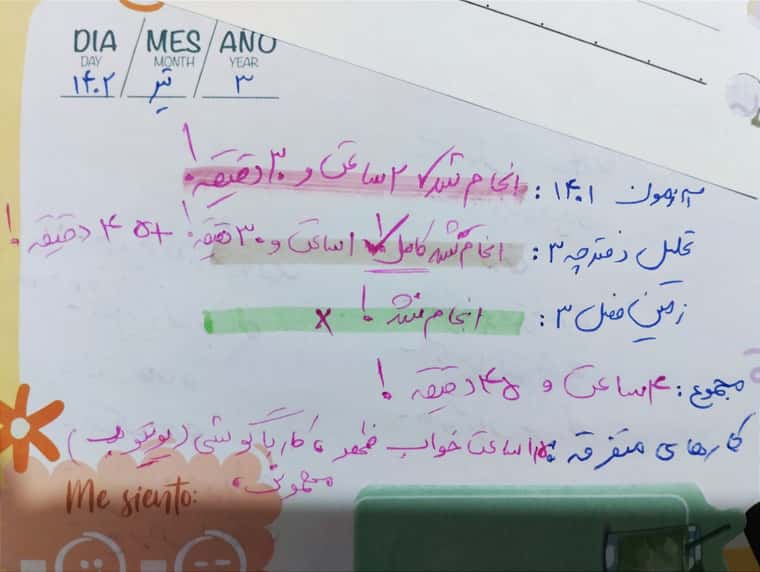 DIA / MES / ANO
DAY MONTH YEAR
۱۴۰۲ تیر ۳
آزمون ۱۴۰۱ : انجام شد ✓ ۲ ساعت و ۳۰ دقیقه !
تحلیل دفترچه ۳ : انجام شد کامل ✓ ۱ ساعت و ۳۰ دقیقه ! + ۴۵ دقیقه !
زمین فصل ۳ : انجام نشد ! x
مجموع : ۴ ساعت و ۴۵ دقیقه !
کارهای متفرقه : ساعت خواب ظهر ، کار با گوشی (یوتیوب)
Me siento: